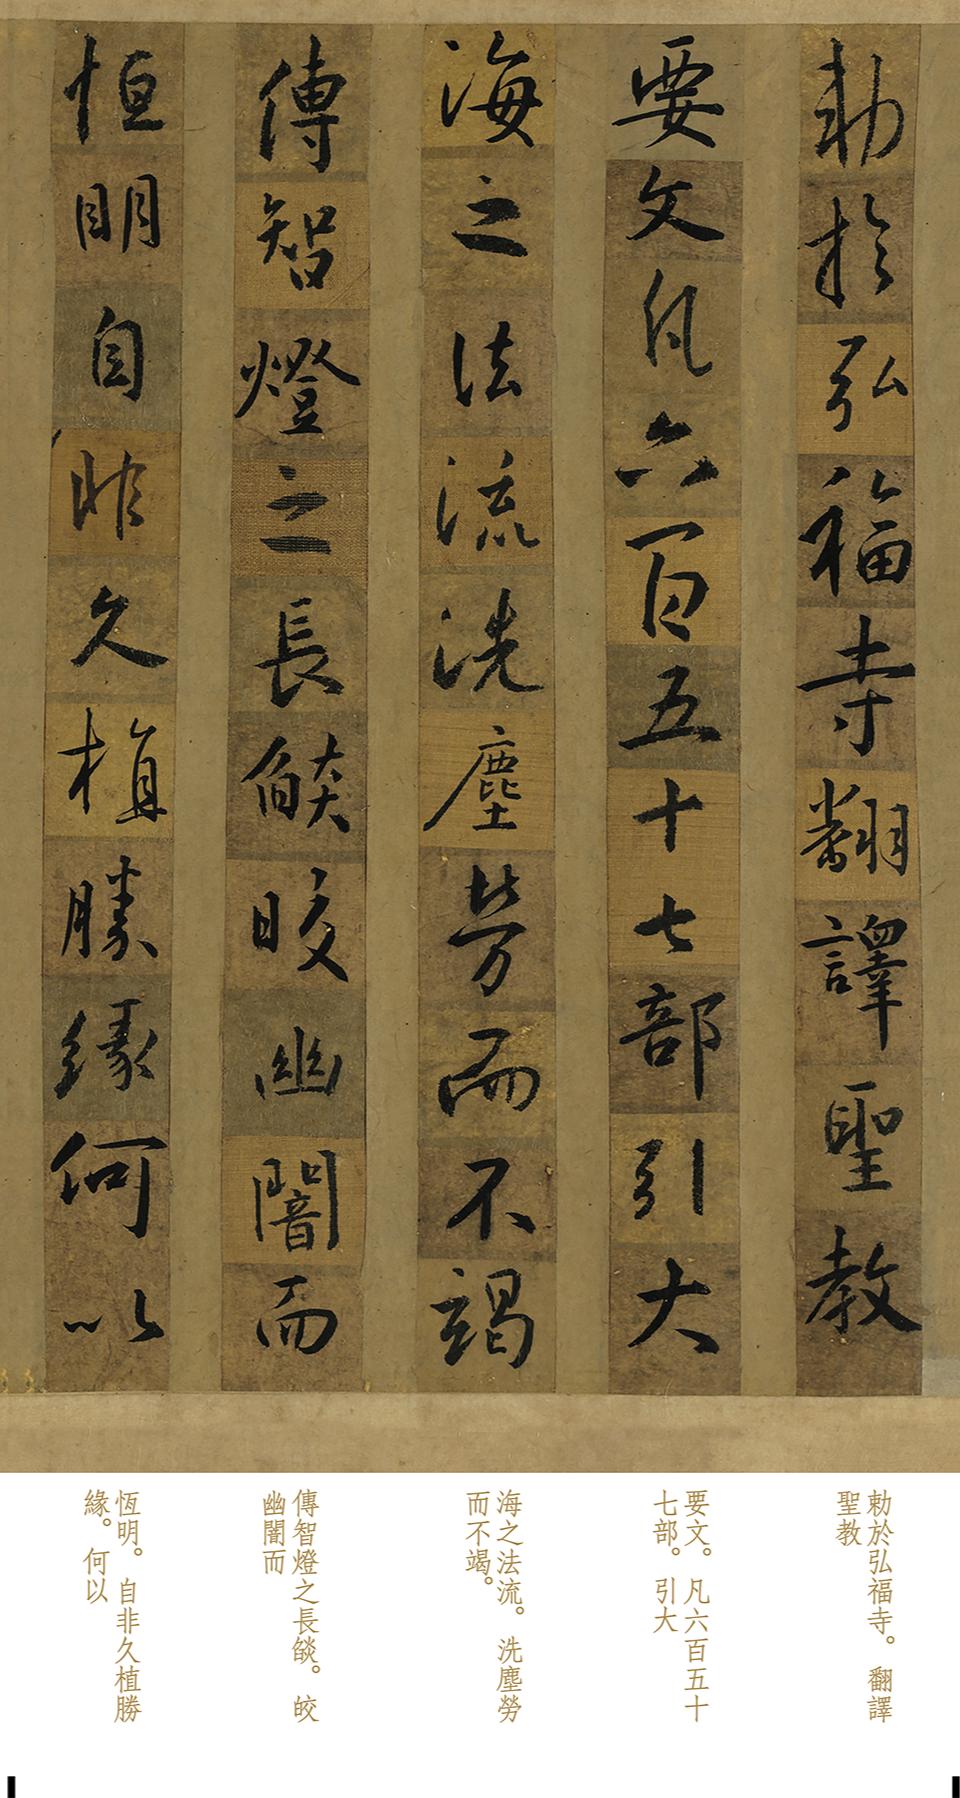 勅於弘福寺翻譯聖教
要文凡六百五十七部引大
海之法流洗塵勞而不竭
傳智燈之長燄皎幽闇而
恒明自非久植勝緣何以
勅於弘福寺。翻譯
聖教
要文。凡六百五十
七部。引大
海之法流。洗塵勞
而不竭。
傳智燈之長燄。皎
幽闇而
恆明。自非久植勝
緣。何以